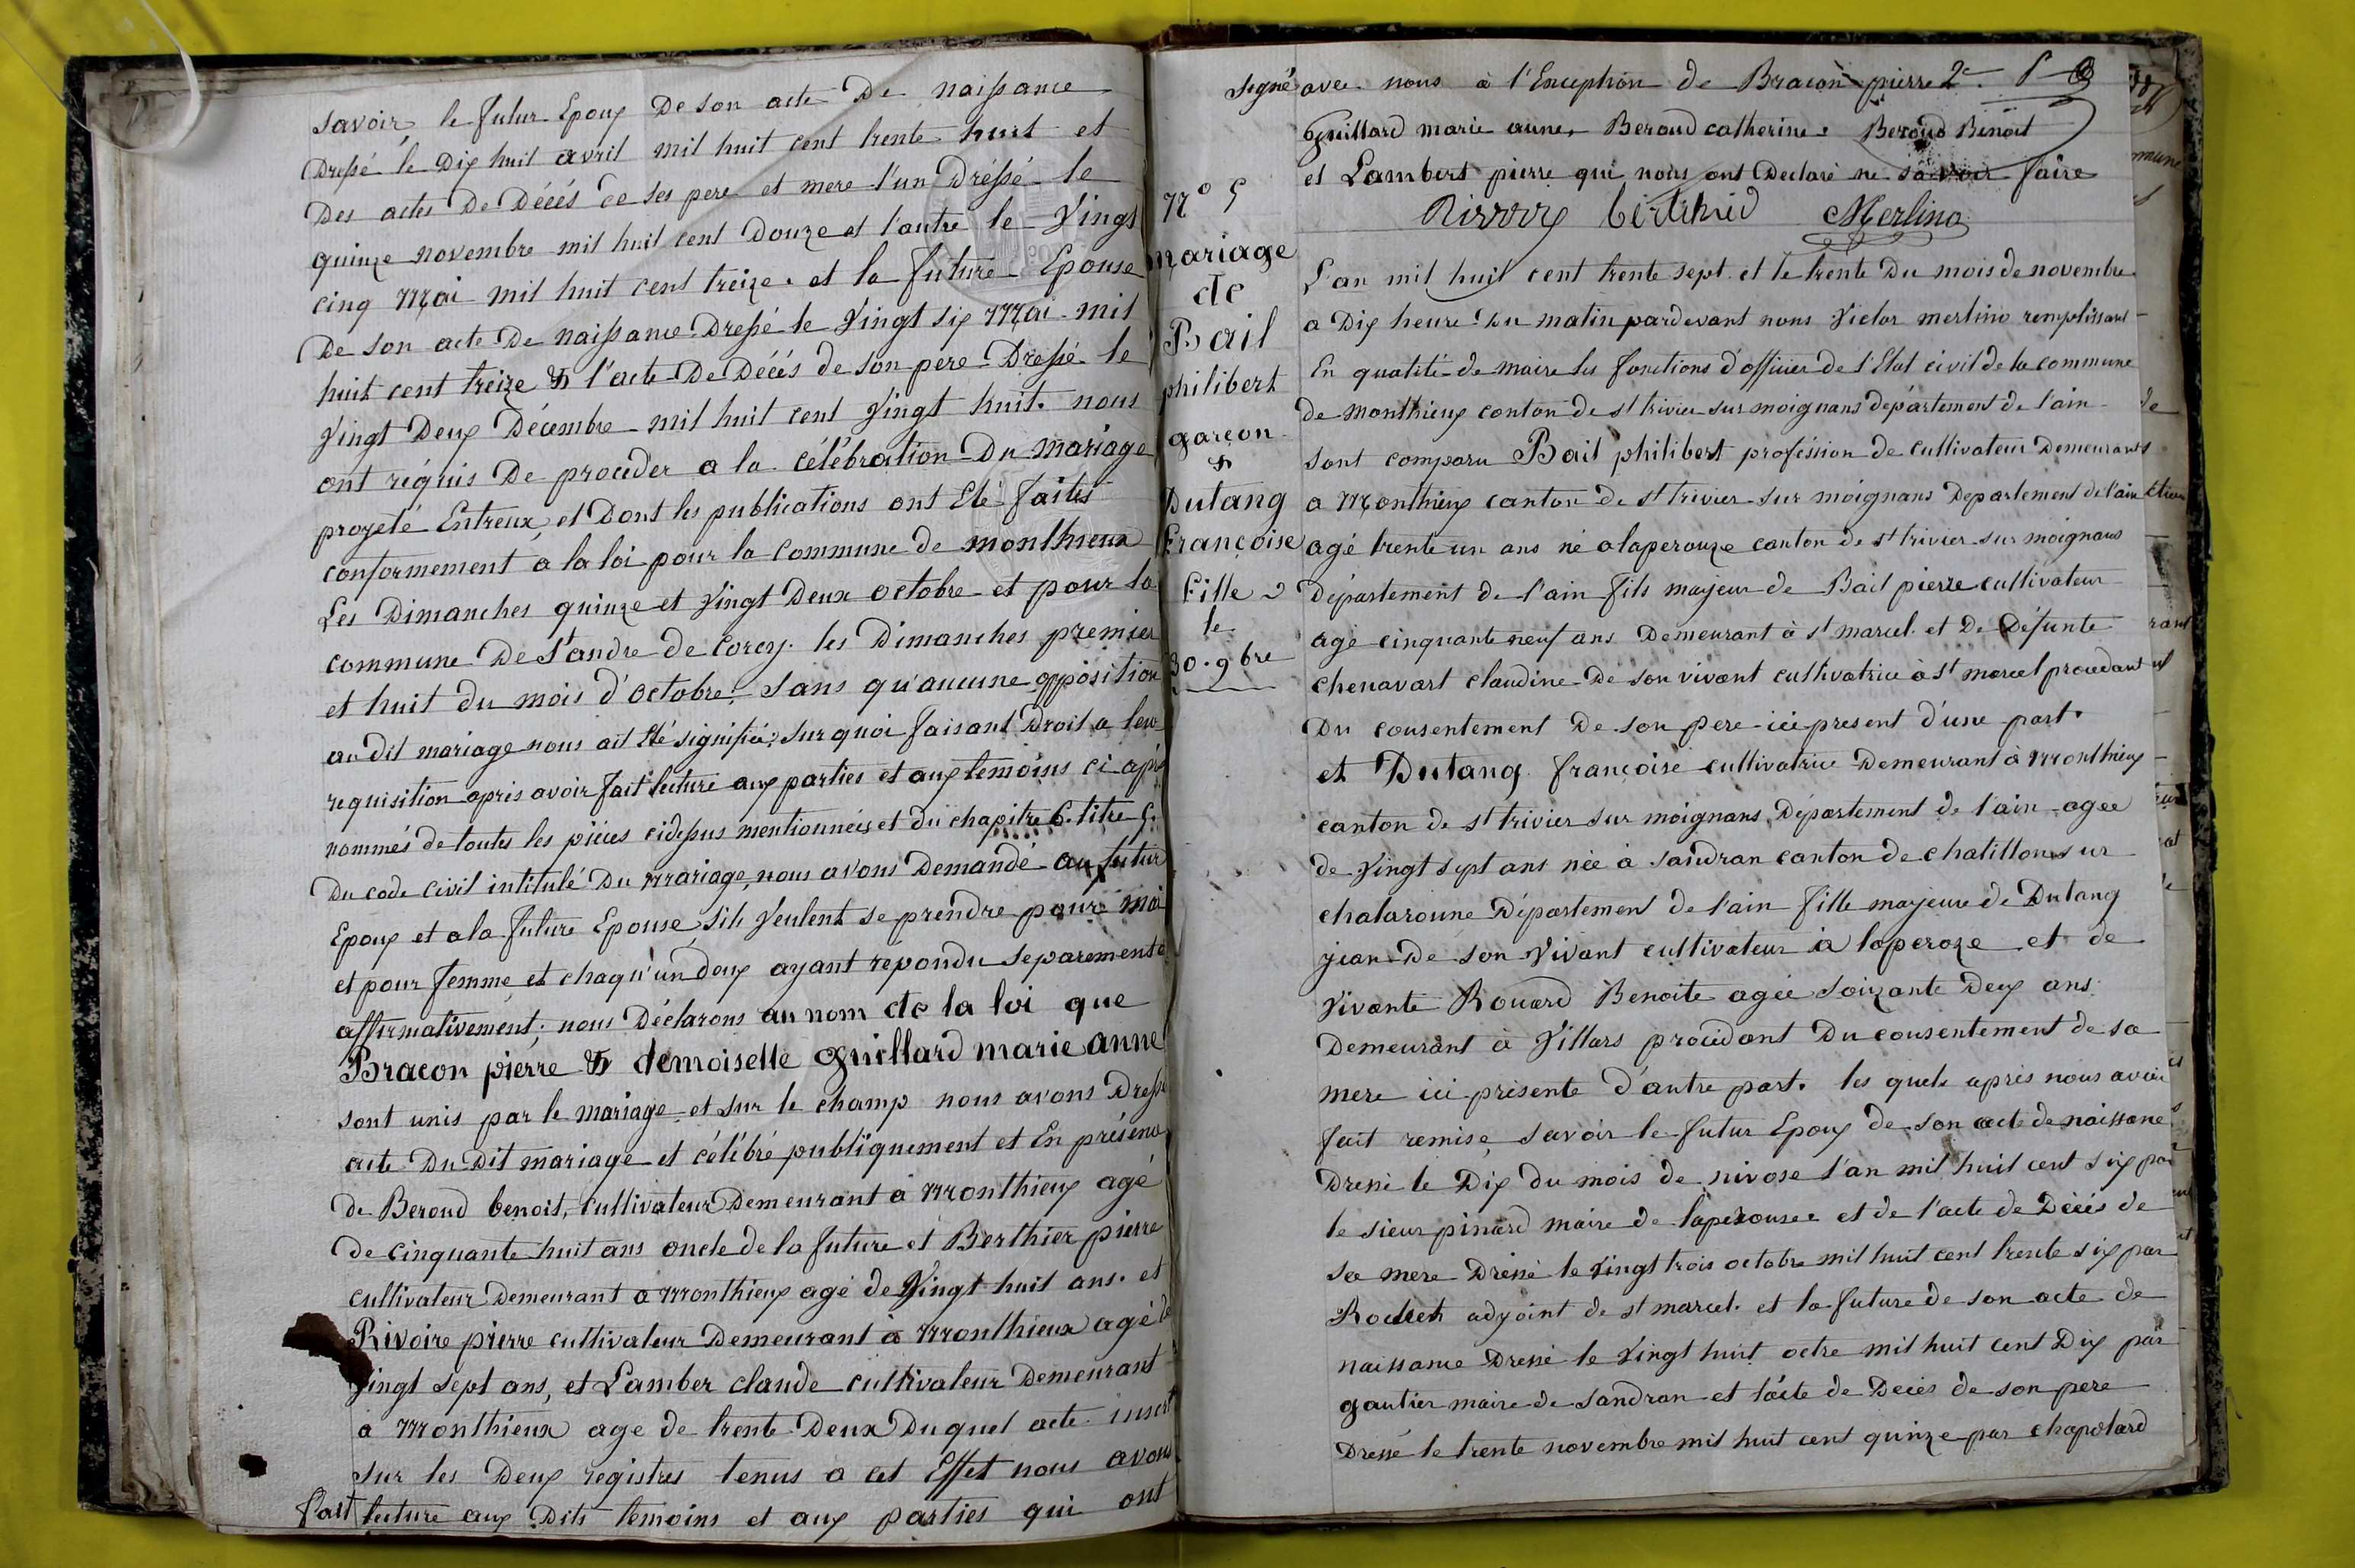 savoir le futur Epoux De son acte De naissance
Dressé le Dix huit avril mil huit cent trente huit et
Des actes De Décés de ses pere et mere l'un Dréssé le
quinze novembre mil huit cent Douze et l'autre le Vingt
cinq Mai mil huit cent treize. et la future Epouse
De son acte De naissance Dressé le Vingt six Mai mil
huit cent treize & l'acte De Décés de son pere Dressé le
Vingt Deux Décembre mil huit cent Vingt huit. nous
ont réquis De proceder a la célébration Du mariage
projeté Entreux et Dont les publications ont Eté faites
conformement a la loi pour la commune de monthieux
Les Dimanches quinze et Vingt Deux octobre et pour la
commune De St andre de Corcy. les Dimanches premier
et huit du mois d'octobre. Sans qu'aucune opposition
au dit mariage nous ait Eté signifié; sur quoi faisant Droit a leur
requisition apris avoir fait lecture aux parties et aux temoins ci apré
nommés de toutes les piéces cidessus mentionnées et du chapitre 6. titre 5.
Du code civil intitulé Du Mariage, nous avons Demandé au futur
Epoux et a la future Epouse sils Veulent se prendre pour mari
et pour femme et chaqu'un deux ayant répondu separement
affirmativement; nous Déclarons au nom de la loi que
Bracon pierre & demoiselle guillard marie anne
sont unis par le mariage et sur le champ nous avons Dressé
acte Du Dit mariage et célébré publiquement et En présence
de Beroud benoit, Cultivateur Demeurant à Monthieux agé
de cinquante huit ans oncle de la future et Berthier pierre
cultivateur Demeurant a Monthieux agé de Vingt huit ans. et
Rivoire pierre cultivateur Demeurant à Monthieux agé de
Vingt sept ans, et Lamber claude cultivateur Demeurant
à Monthieux age de trente Deux Duquel acte insert
sur les Deux registres tenus a cet Effet nous avons
fait lecture aux Dits temoins et aux parties qui ont
signé avec nous à l'Exception de Bracon pierre 2e
guillard marie anne, Beroud catherine. Beroud Benoit
et Lambert pierre qui nous ont Declaré ne savoir faire
Merlino
No 5
mariage
de
Bail
philibert
garçon
&
Dutang
Françoise
fille
le
30. 9bre
L'an mil huit cent trente sept et le trente Du mois de novembre
a Dix heure Du matin pardevant nous Victor merlino remplissant
En qualité de maire les fonctions d'officier de l'Etat civil de la commune
de monthieux canton de st trivier sur moignans département de l'ain
sont comparu Bail philibert proféssion de cultivateur Demeurant
a Monthieux canton de st trivier sur moignans Departement de l'ain
agé trente un ans né a laperouze canton de st trivier sur moignans
Département de l'ain fils majeur de Bail pierre cultivateur
agé cinquante neuf ans Demeurant à st marcel. et De Défunte
chenavart claudine De son vivant cultivatrice à st marcel procedant
Du consentement De son pere ici present d'une part.
et Dutang françoise cultivatrice Demeurant à Monthieux
canton de st trivier sur moignans Département de l'ain agee
de Vingt sept ans née à sandran canton de chatillon sur
chalaronne Département de l'ain fille majeure de Dutang
jean De son Vivant cultivateur à laperoze et de
Vivante Rouard Benoite agée soixante Deux ans
Demeurant à Villars procédant Du consentement de sa
mere ici présente d'autre part. les quels après nous avoir
fait remise, savoir le futur Epoux de son acte de naissance
Dressé le Dix du mois de nivose l'an mil huit cent six par
le sieur pinard maire de laperousee et de l'acte de Décés de
sa mere Dressé le Vingt trois octobre mil huit cent trente six par
adjoint de st marcel. et la future de son acte de
naissance Dressé le Vingt huit octre mil huit cent Dix par
gautier maire de sandran et l'acte de Decés de son pere
Dressé le trente novembre mil huit cent quinze par chapolard